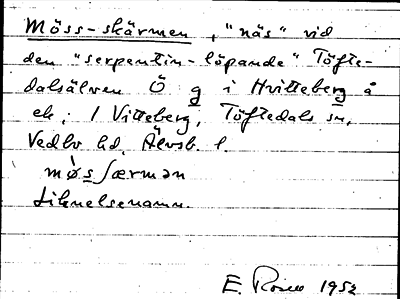 Möss-skärmen, "näs" vid
den "serpentin-löpande" Töfte-
dalsälven Ö g i Hvitteberg å
ek. 1 Vitteberg, Töftedals sn,
Vedbo hd, Älvsb. l.
møs ʃærmən
Liknelsenamn.
E. Rosen 1952